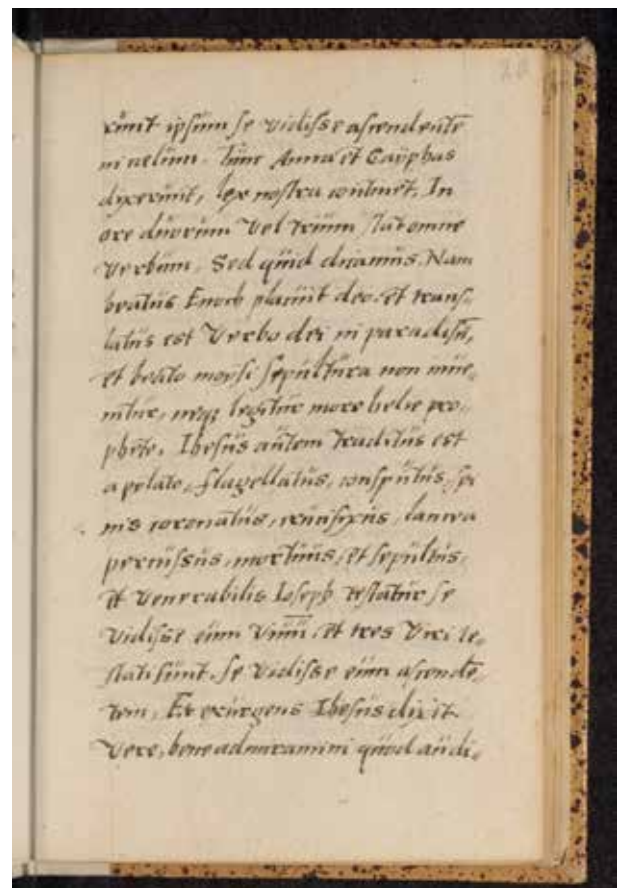 20
xerunt ipsum se vidisse ascendentē
in celum. Tunc Anna et Cayphas
dixerunt, lex nostra continet, In
ore duorum vel trium stat omne
verbum. Sed quid dicamus. Nam
beatus Enoch placuit deo, et trans-
latus est verbo dei in paradisū,
et beato moysi sepultura non inue-
nitur, neqꝫ legitur more helie pro-
phete. Ihesus autem traditus est
a pylato, flagellatus, consputus, spi
nis coronatus, crucifixus, lancea
percussus, mortuus, et sepultus,
et venerabilis Ioseph testatur se
vidisse eum viuū, et tres viri te-
stati sunt, se vidisse eum ascendē-
tem, Et exurgens Ihesus dixit
vere, bene admiramini quod audi-